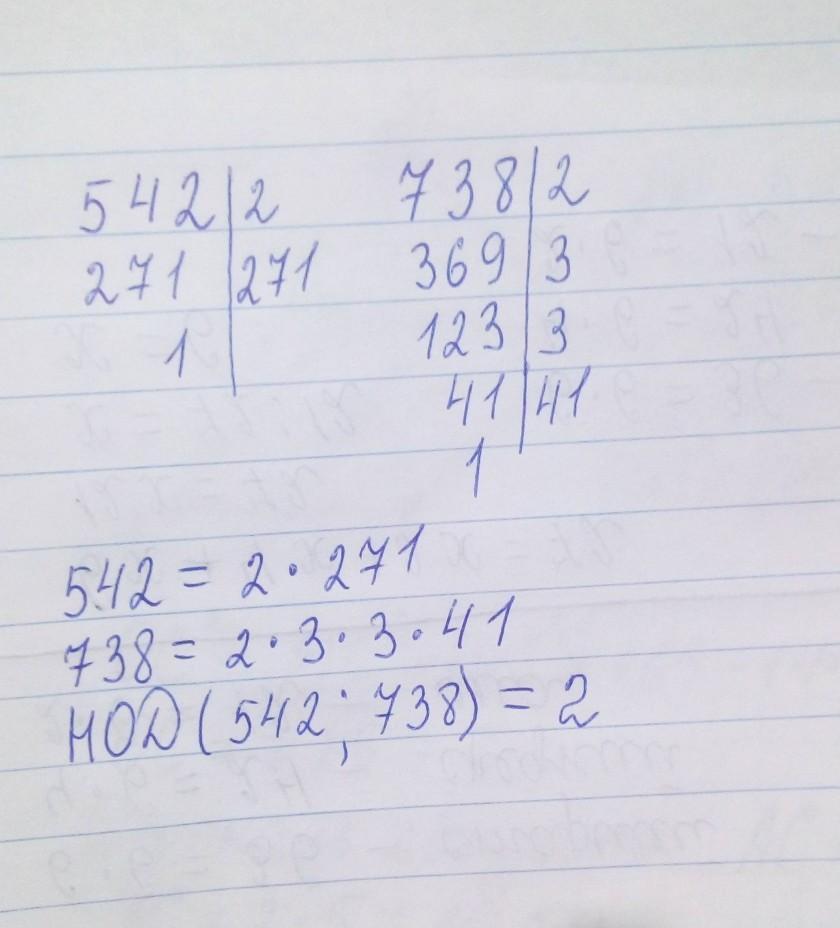 542 | 2 738 | 2
271 | 271 369 | 3
1 | 123 | 3
41 | 41
1
542 = 2 · 271
738 = 2 · 3 · 3 · 41
НОД (542 ; 738) = 2